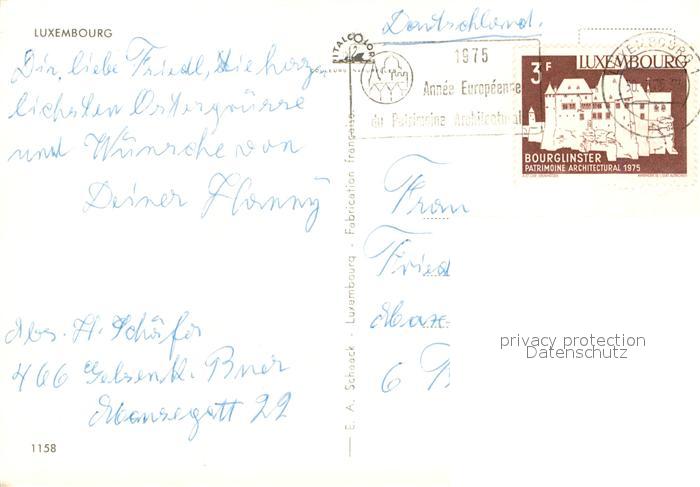 LUXEMBOURG
Dir, liebe Friedl, die herz-
lichsten Ostergrüsse
und Wünsche von
Deiner Hanny
Abs. H. Schäfer
466 Gelsenk. Buer
22
1158
E. A. Schaack - Luxembourg - Fabrication française
ITALCOLOR
Deutschland.
1975
Année Européenne
du Patrimoine Architectural
3F LUXEMBOURG
BOURGLINSTER
PATRIMOINE ARCHITECTURAL 1975
LUXEMBOURG
Frau
Fried
6
privacy protection
Datenschutz